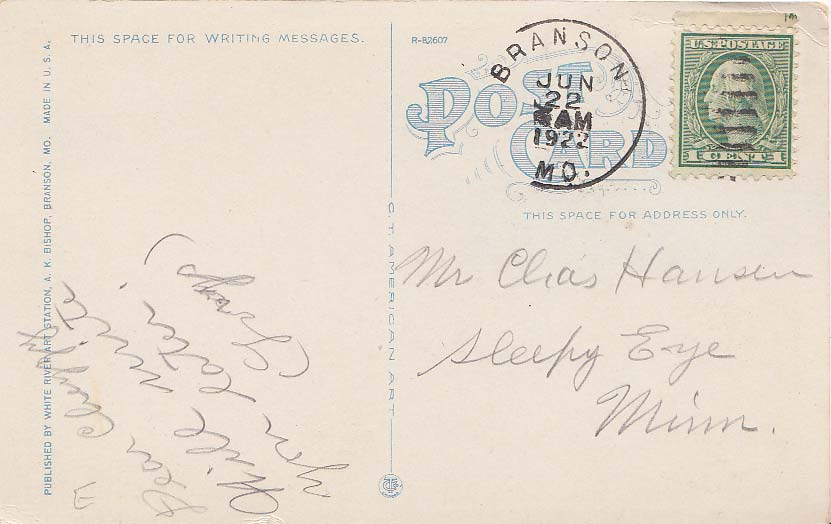 THIS SPACE FOR WRITING MESSAGES.
Dear
Will write
you later.
PUBLISHED BY WHITE RIVER ART STATION, A. K. BISHOP, BRANSON, MO. MADE IN U. S. A.
C. T. AMERICAN ART
R-82607
POST CARD
BRANSON
JUN
22
AM
1922
MO.
U.S. POSTAGE
1 CENT 1
THIS SPACE FOR ADDRESS ONLY.
Mr Chas Hansen
Sleepy Eye
Minn.